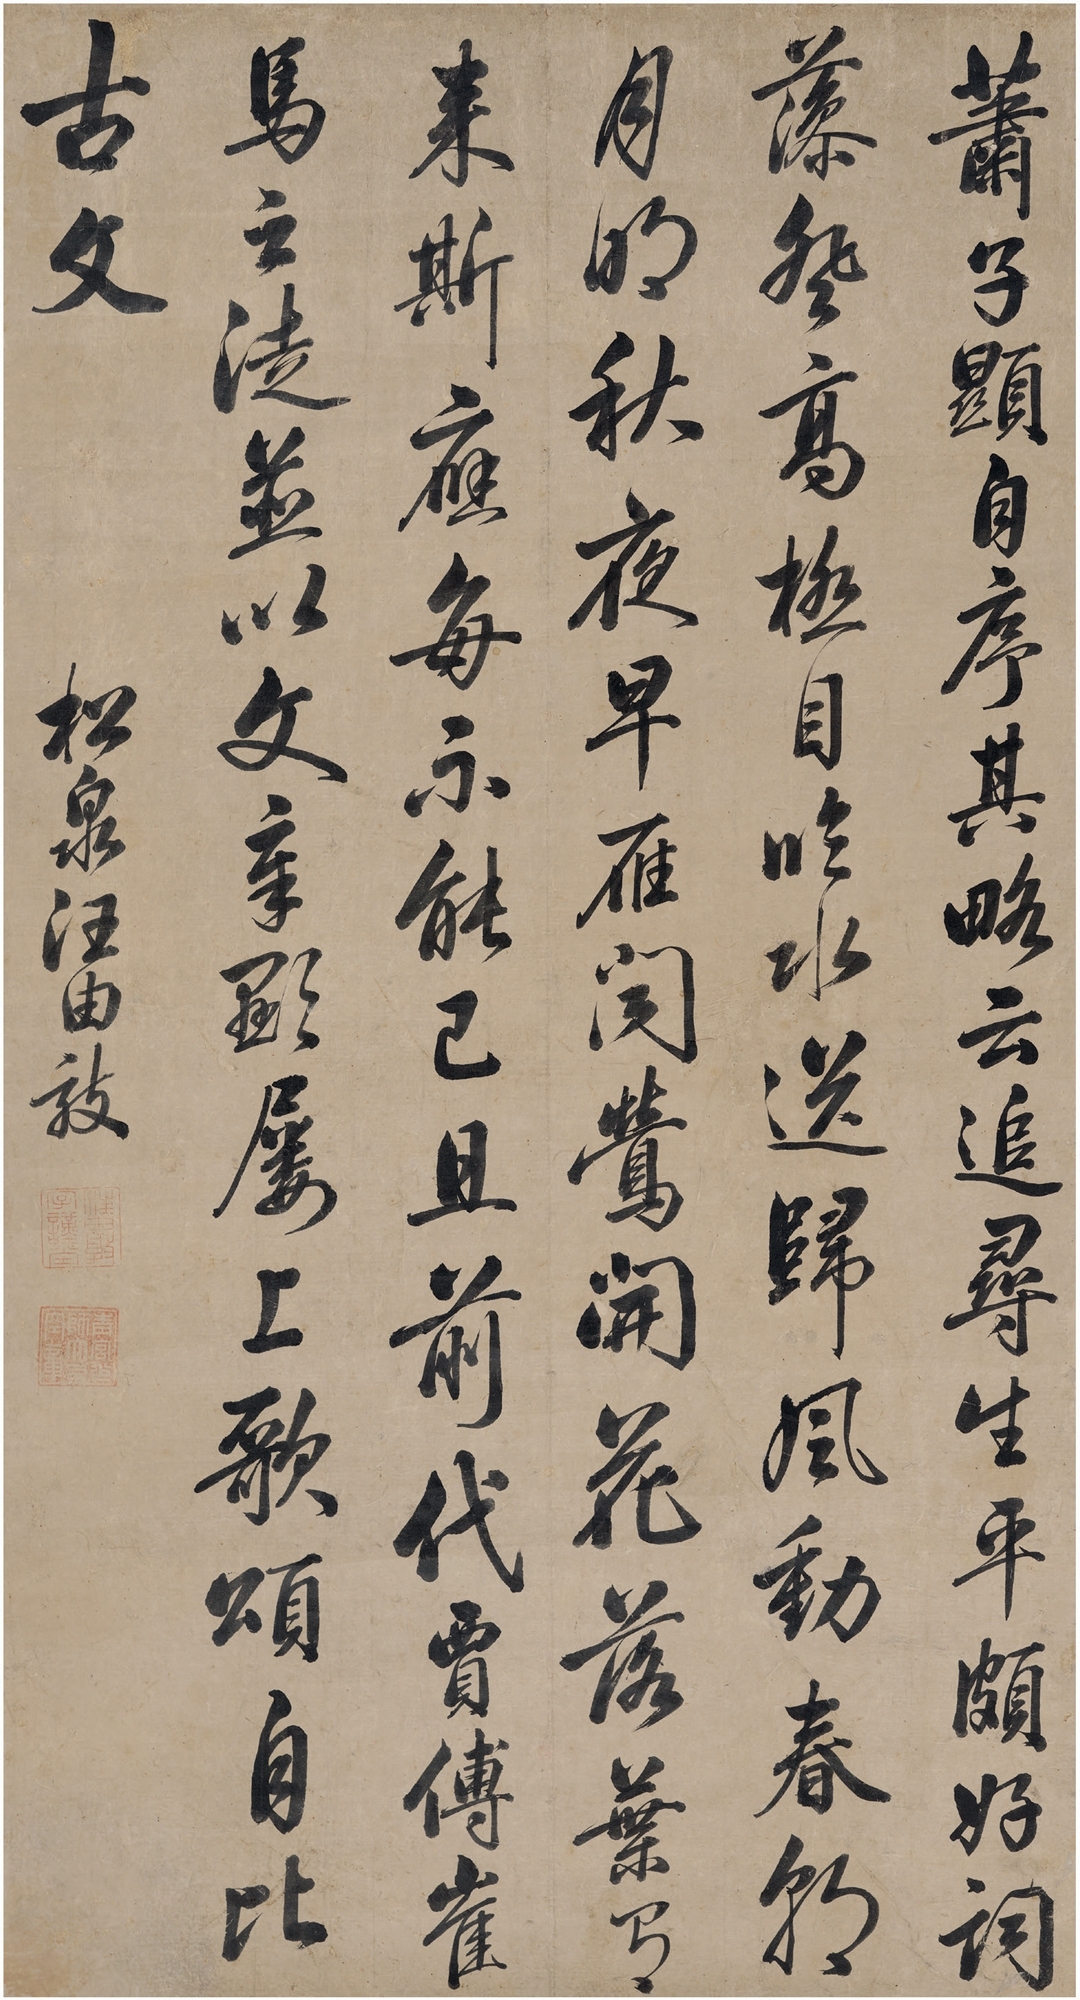 蕭子顯自序其略云追尋生平頗好詞
藻登高極目临水送歸風動春朝
月明秋夜早雁聞鶯開花落葉有
来斯應每不能已且前代賈傅崔
馬之徒並以文章顯屢上歌頌自比
古文
松泉汪由敦